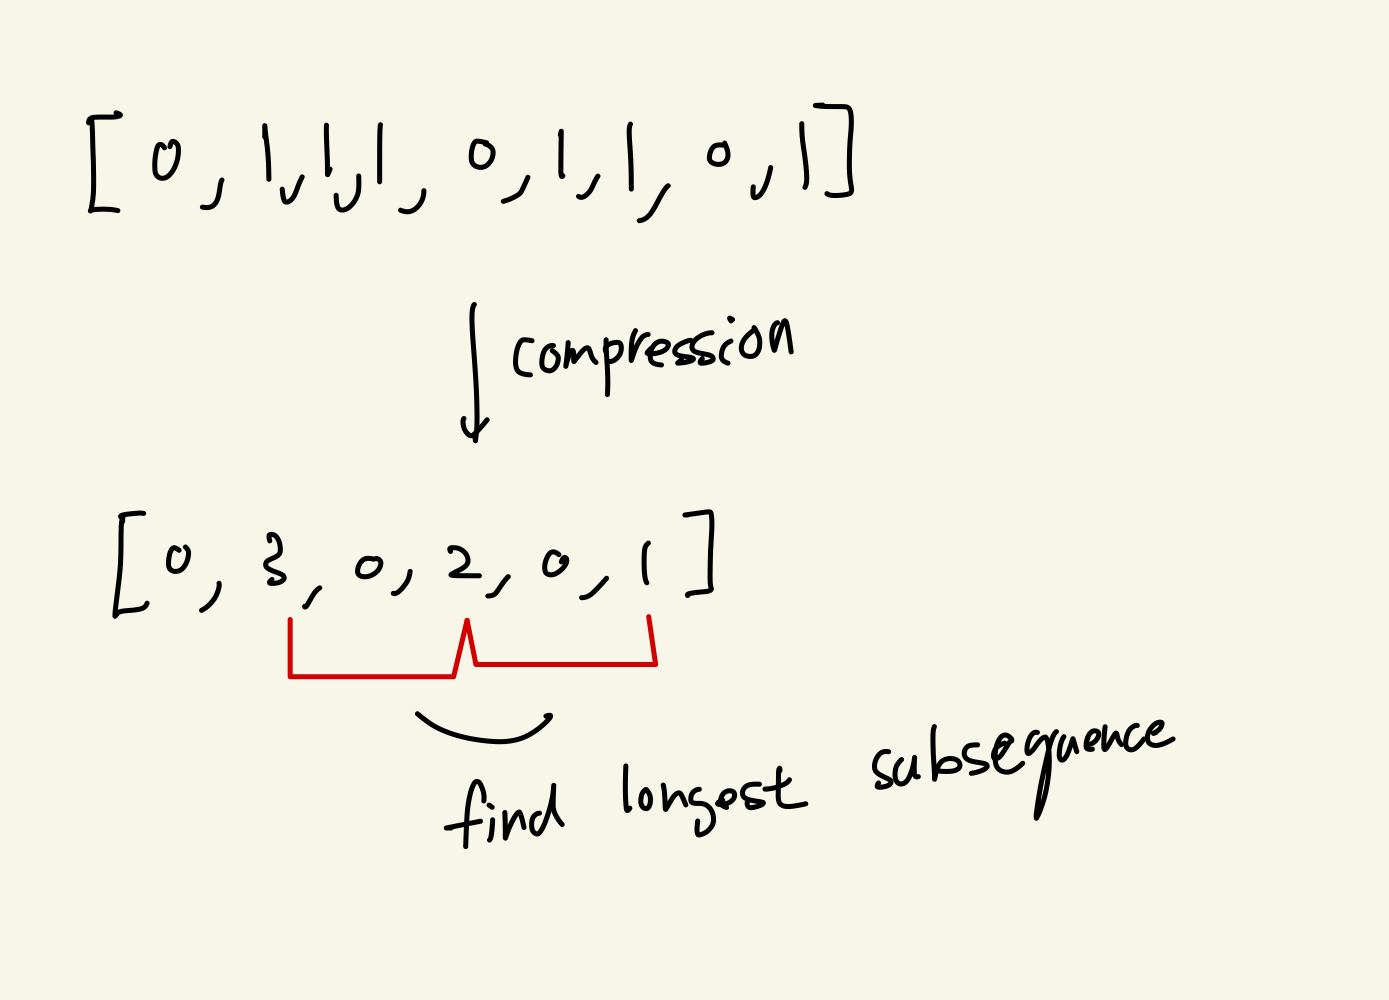 [ 0, 1, 1, 1, 0, 1, 1, 0, 1 ]
compression
[ 0, 3, 0, 2, 0, 1 ]
find longest subsequence